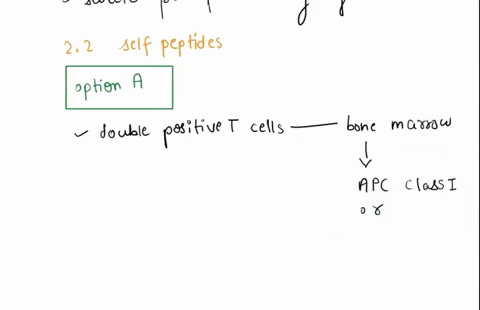 2.2 self peptides
option A
✓ double positive T cells — bone marrow
↓
APC class I
or